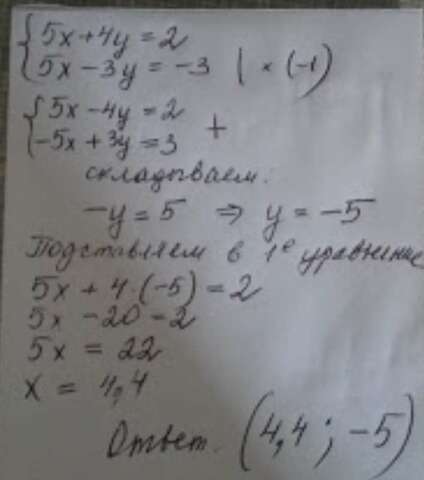 5x+4y=2
5x-3y=-3 | × (-1)
5x-4y=2
-5x+3y=3 +
складываем:
-y=5 ⇒ y=-5
Подставляем в 1е уравнение
5x+4·(-5)=2
5x-20=2
5x=22
x=4,4
Ответ. (4,4; -5)